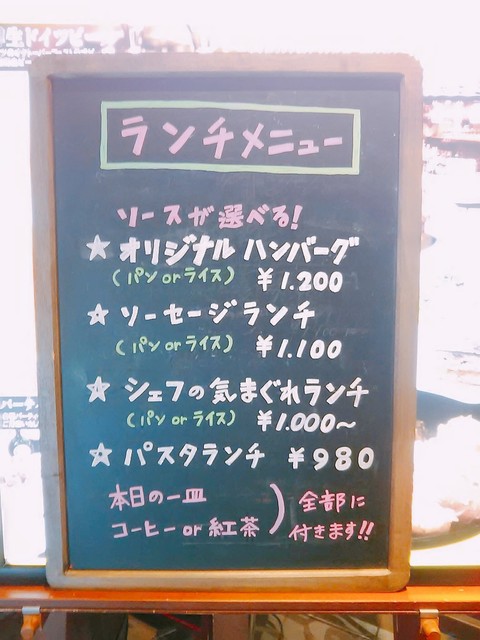 生ドイツビー
ランチメニュー
ソースが選べる!
☆ オリジナル ハンバーグ
(パン or ライス) ¥1.200
☆ ソーセージランチ
(パン or ライス) ¥1.100
☆ シェフの気まぐれランチ
(パン or ライス) ¥1.000~
☆ パスタランチ ¥980
本日の一皿
コーヒー or 紅茶
全部に
付きます!!